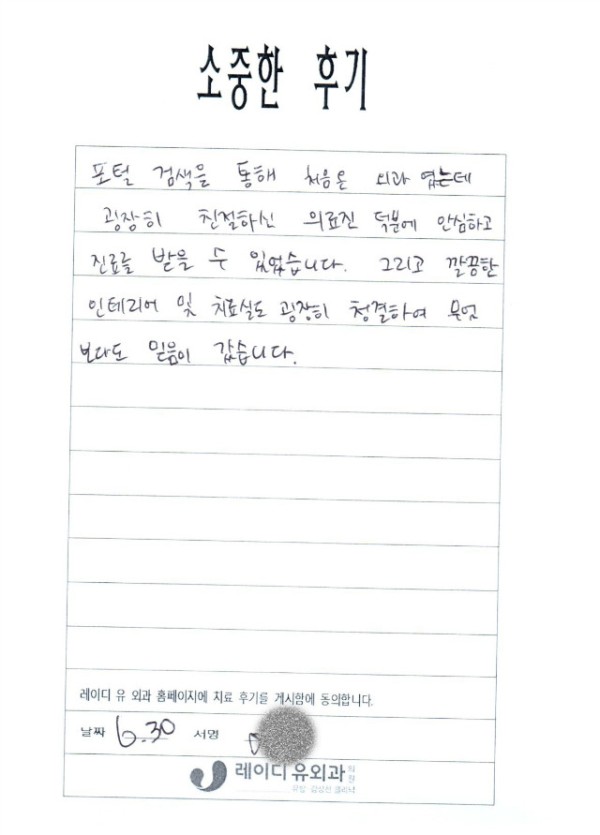 소중한 후기
포털 검색을 통해 처음온 외과 였는데
굉장히 친절하신 의료진 덕분에 안심하고
진료를 받을 수 있었습니다. 그리고 깔끔한
인테리어 및 치료실도 굉장히 청결하여 무엇
보다도 믿음이 갔습니다.
레이디 유 외과 홈페이지에 치료 후기를 게시함에 동의합니다.
날짜 6.30 서명
레이디 유외과 의원
유방·갑상선 클리닉